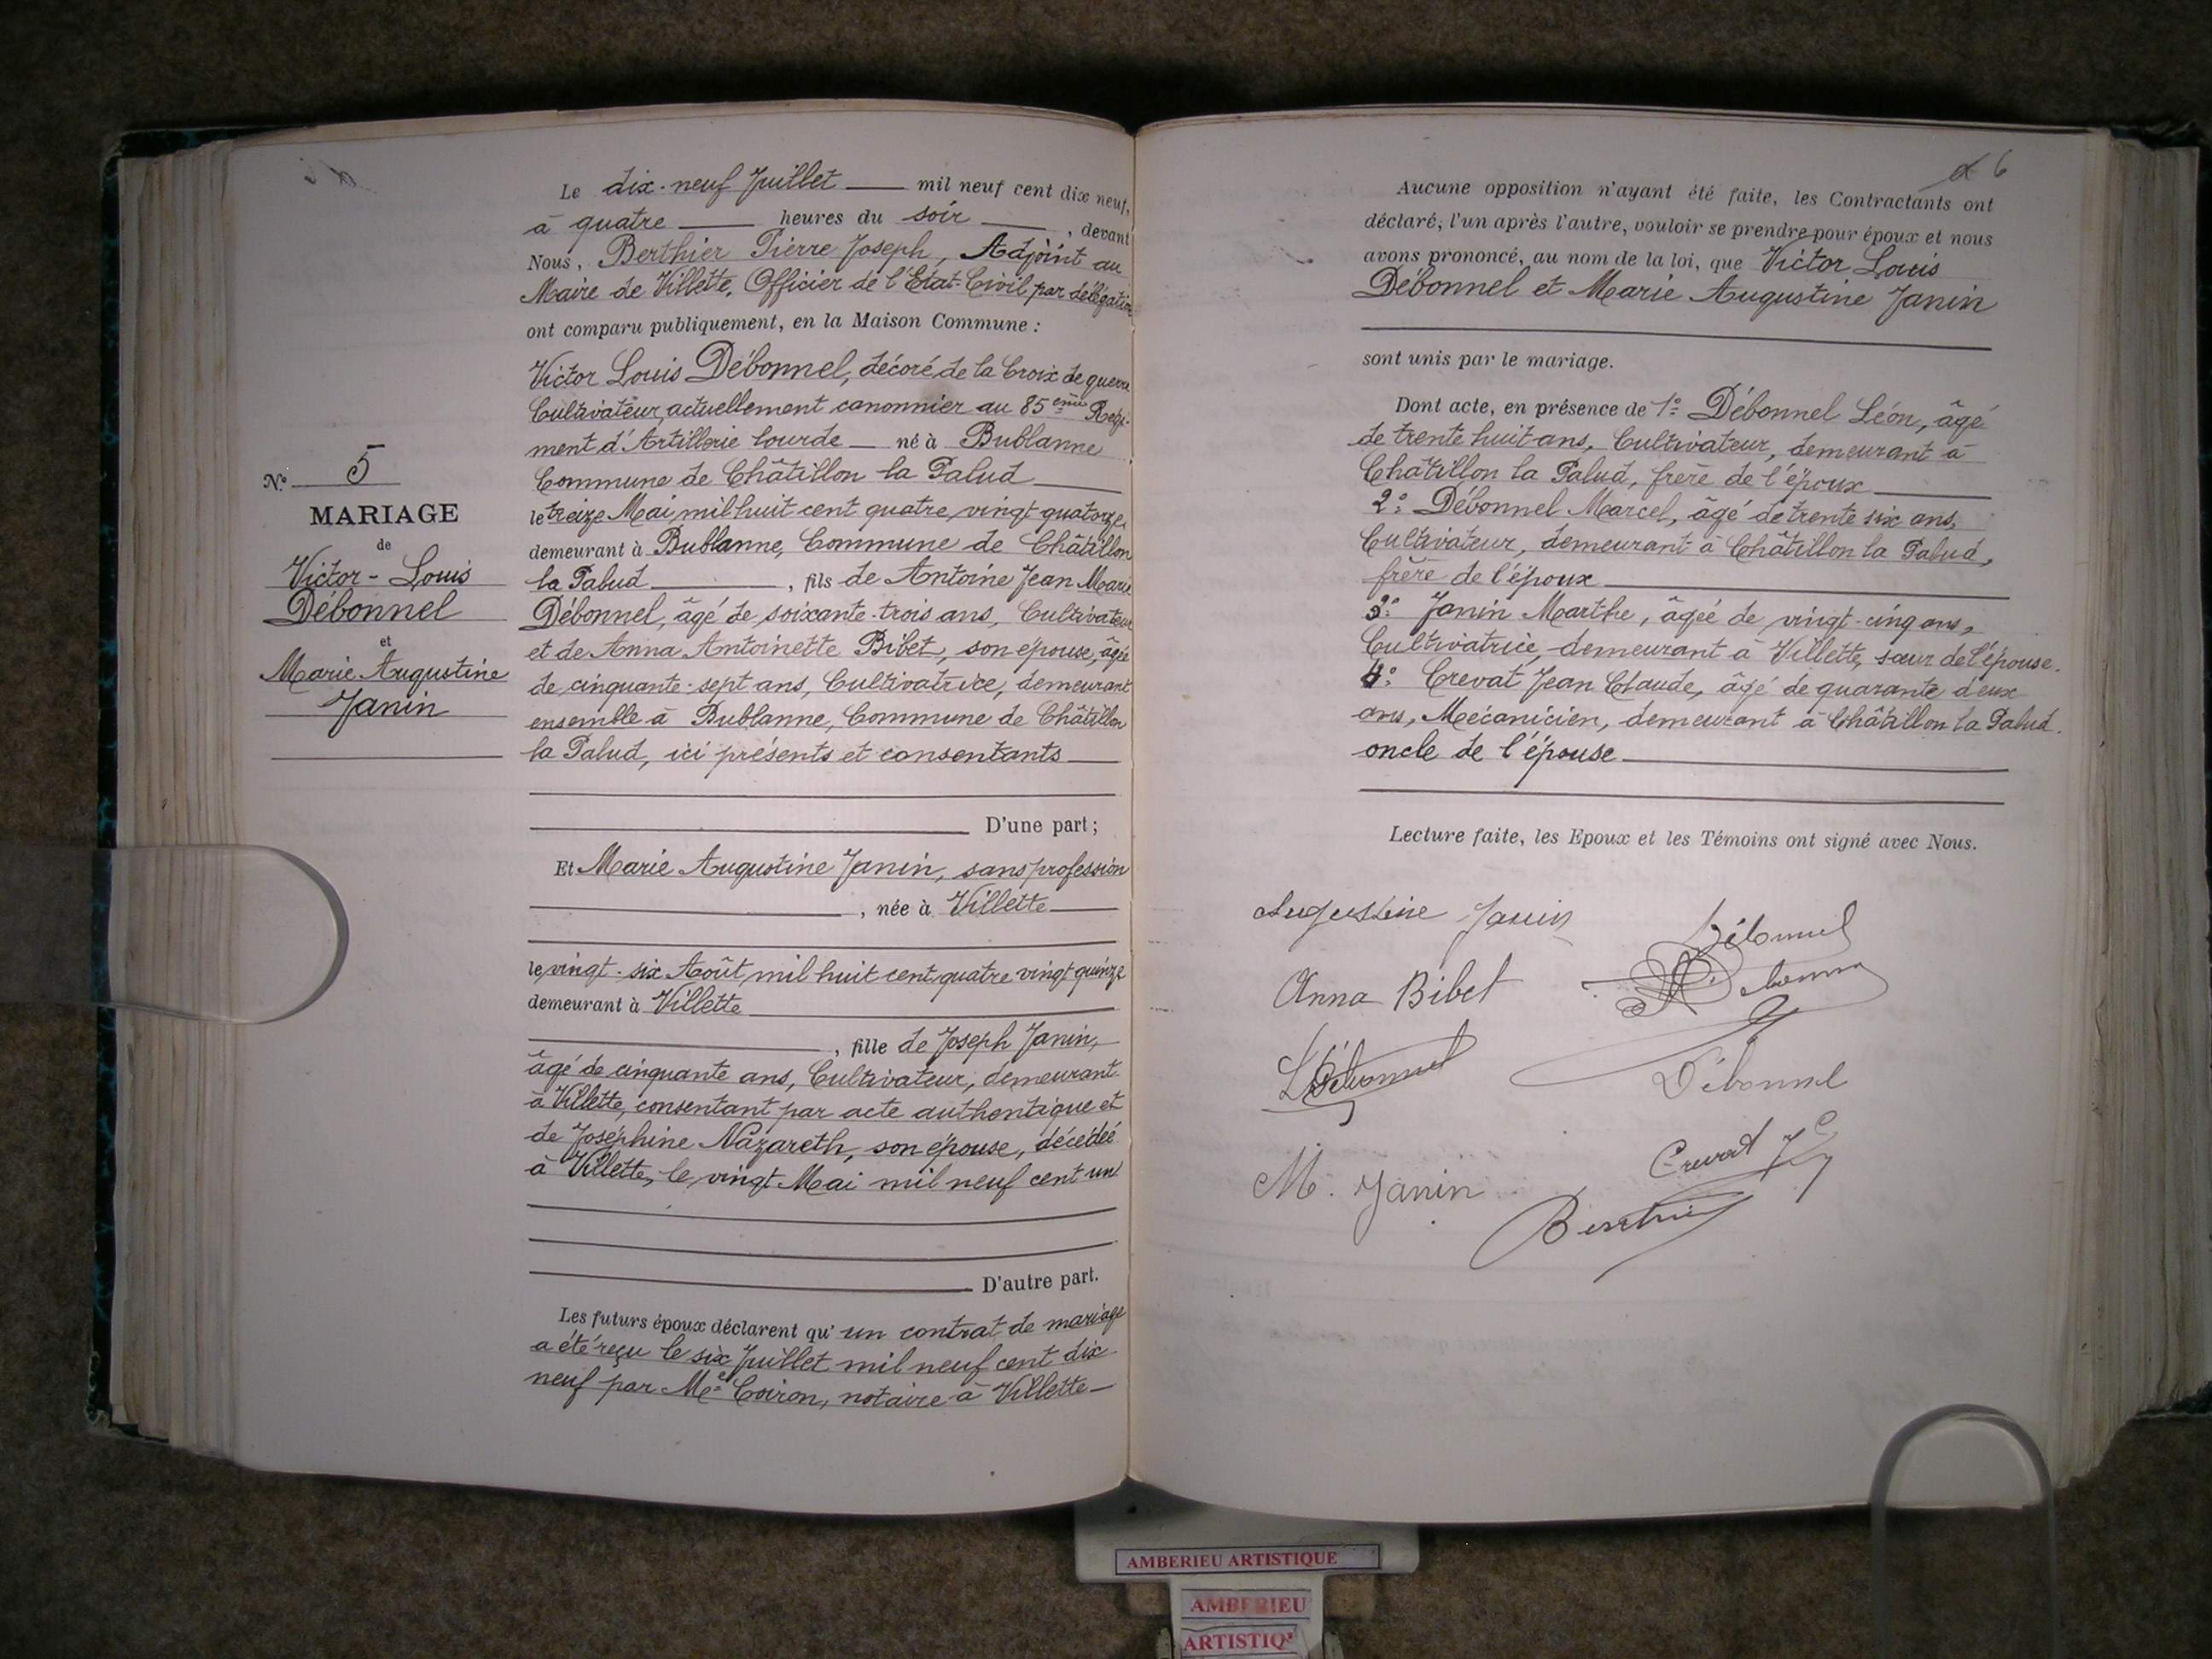 N° 5
MARIAGE
de
Victor - Louis
Débonnel
et
Marie Augustine
Janin
Le dix-neuf Juillet mil neuf cent dix neuf,
à quatre heures du soir, devant
Nous, Berthier Pierre Joseph, Adjoint au
Maire de Villette, Officier de l'Etat-Civil par délégation
ont comparu publiquement, en la Maison Commune :
Victor Louis Débonnel, décoré de la Croix de guerre
Cultivateur, actuellement canonnier au 85ème Régi-
ment d'Artillerie lourde né à Bublanne
Commune de Châtillon la Palud
le treize Mai, mil huit cent quatre vingt quatorze,
demeurant à Bublanne, Commune de Châtillon
la Palud, fils de Antoine Jean Marie
Débonnel, âgé de soixante-trois ans, Cultivateur
et de Anna Antoinette Bibet, son épouse, âgée
de cinquante-sept ans, Cultivatrice, demeurant
ensemble à Bublanne, Commune de Châtillon
la Palud, ici présents et consentants
D'une part ;
Et Marie Augustine Janin, sans profession
, née à Villette
le vingt-six Août mil huit cent quatre vingt quinze
demeurant à Villette
, fille de Joseph Janin,
âgé de cinquante ans, Cultivateur, demeurant
à Villette, consentant par acte authentique et
de Joséphine Nazareth, son épouse, décédée
à Villette, le vingt Mai mil neuf cent un
D'autre part.
Les futurs époux déclarent qu'un contrat de mariage
a été reçu le six Juillet mil neuf cent dix-
neuf par Me Coiron, notaire à Villette
6
Aucune opposition n'ayant été faite, les Contractants ont
déclaré, l'un après l'autre, vouloir se prendre pour époux et nous
avons prononcé, au nom de la loi, que Victor Louis
Débonnel et Marie Augustine Janin
sont unis par le mariage.
Dont acte, en présence de 1° Débonnel Léon, âgé
de trente huit ans, Cultivateur, demeurant à
Châtillon la Palud, frère de l'époux
2° Débonnel Marcel, âgé de trente six ans,
Cultivateur, demeurant à Châtillon la Palud,
frère de l'époux
3° Janin Marthe, âgée de vingt-cinq ans,
Cultivatrice, demeurant à Villette, sœur de l'épouse.
4° Crevat Jean Claude, âgé de quarante deux
ans, Mécanicien, demeurant à Châtillon la Palud.
oncle de l'épouse
Lecture faite, les Epoux et les Témoins ont signé avec Nous.
Augustine Janin
Débonnel
Anna Bibet
Débonnel
M. Janin
Crevat
Berthier
AMBERIEU ARTISTIQUE
AMBERIEU
ARTISTIQ